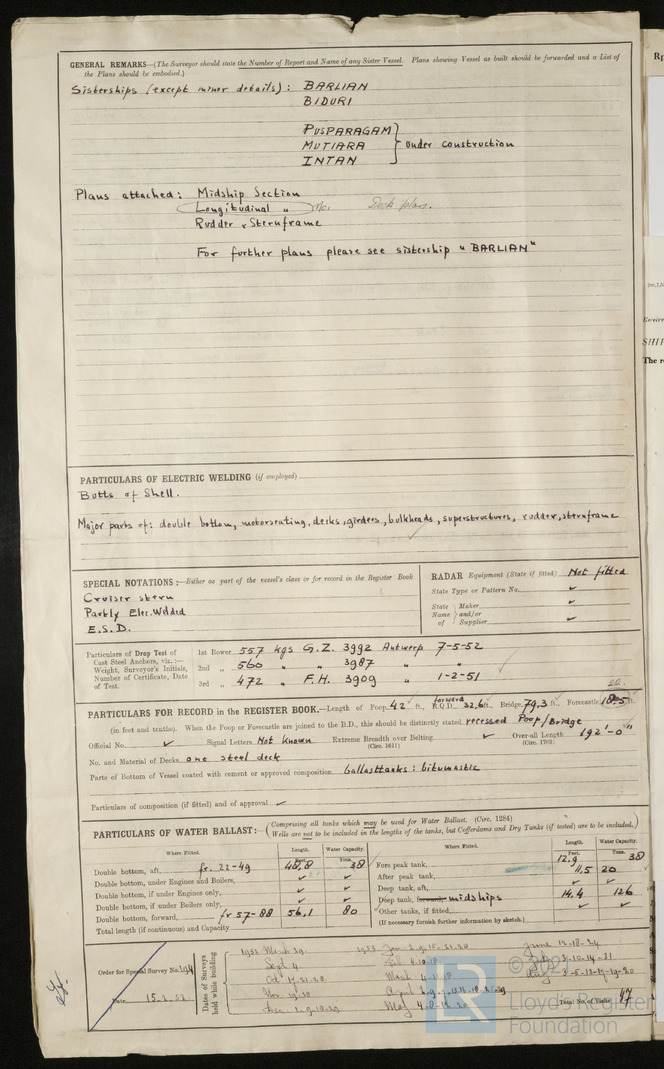 GENERAL REMARKS—(The Surveyor should state the Number of Report and Name of any Sister Vessel. Plans showing Vessel as built should be forwarded and a List of
the Plans should be embodied.)
Sisterships (except minor details): BARLIAN
BIDURI
PUSPARAGAM
MUTIARA } under construction
INTAN
Plans attached: Midship Section
Longitudinal " Deck plan.
Rudder & Sternframe
For further plans please see sistership "BARLIAN"
PARTICULARS OF ELECTRIC WELDING (if employed)
Butts of Shell.
Major parts of: double bottom, motorseating, decks, girders, bulkheads, superstructures, rudder, sternframe
SPECIAL NOTATIONS:—Either as part of the vessel's class or for record in the Register Book
Cruiser stern
Partly Elec. Welded
E.S.D.
RADAR Equipment (State if fitted) Not fitted
State Type or Pattern No.
State Name of { Maker and/or Supplier
Particulars of Drop Test of Cast Steel Anchors, viz.:— Weight, Surveyor's Initials, Number of Certificate, Date of Test.
1st Bower 557 kgs G.Z. 3992 Antwerp 7-5-52
2nd " 560 " " 3987 " "
3rd " 472 " F.H. 3909 " 1-2-51
PARTICULARS FOR RECORD in the REGISTER BOOK.—Length of Poop 42 ft., forward R.Q.D. 32,6 ft., Bridge 79,3 ft., Forecastle 18.5 ft.
(in feet and tenths). When the Poop or Forecastle are joined to the B.D., this should be distinctly stated recessed Poop/Bridge
Official No. Signal Letters Not known Extreme Breadth over Belting (Circ. 1611) Over-all Length (Circ. 1703) 192'-0"
No. and Material of Decks one steel deck
Parts of Bottom of Vessel coated with cement or approved composition ballasttanks: bitumastic
Particulars of composition (if fitted) and of approval
PARTICULARS OF WATER BALLAST:—(Comprising all tanks which may be used for Water Ballast. (Circ. 1284)
Wells are not to be included in the lengths of the tanks, but Cofferdams and Dry Tanks (if tested) are to be included.)
Where Fitted. Length. Feet. Water Capacity. Tons. Where Fitted. Length. Feet. Water Capacity. Tons.
Double bottom, aft, fr. 22-49 48,8 38 Fore peak tank, 12.9 38
Double bottom, under Engines and Boilers, After peak tank, 11.5 20
Double bottom, if under Engines only, Deep tank, aft,
Double bottom, if under Boilers only, Deep tank, forward, midships 14.4 126
Double bottom, forward, fr 57-88 56,1 80 Other tanks, if fitted,
Total length (if continuous) and Capacity (If necessary furnish further information by sketch.)
Order for Special Survey No. 194
Date 15.2.52
Dates of Surveys held while building
Total No. of Visits 47
Lloyd's Register
Foundation